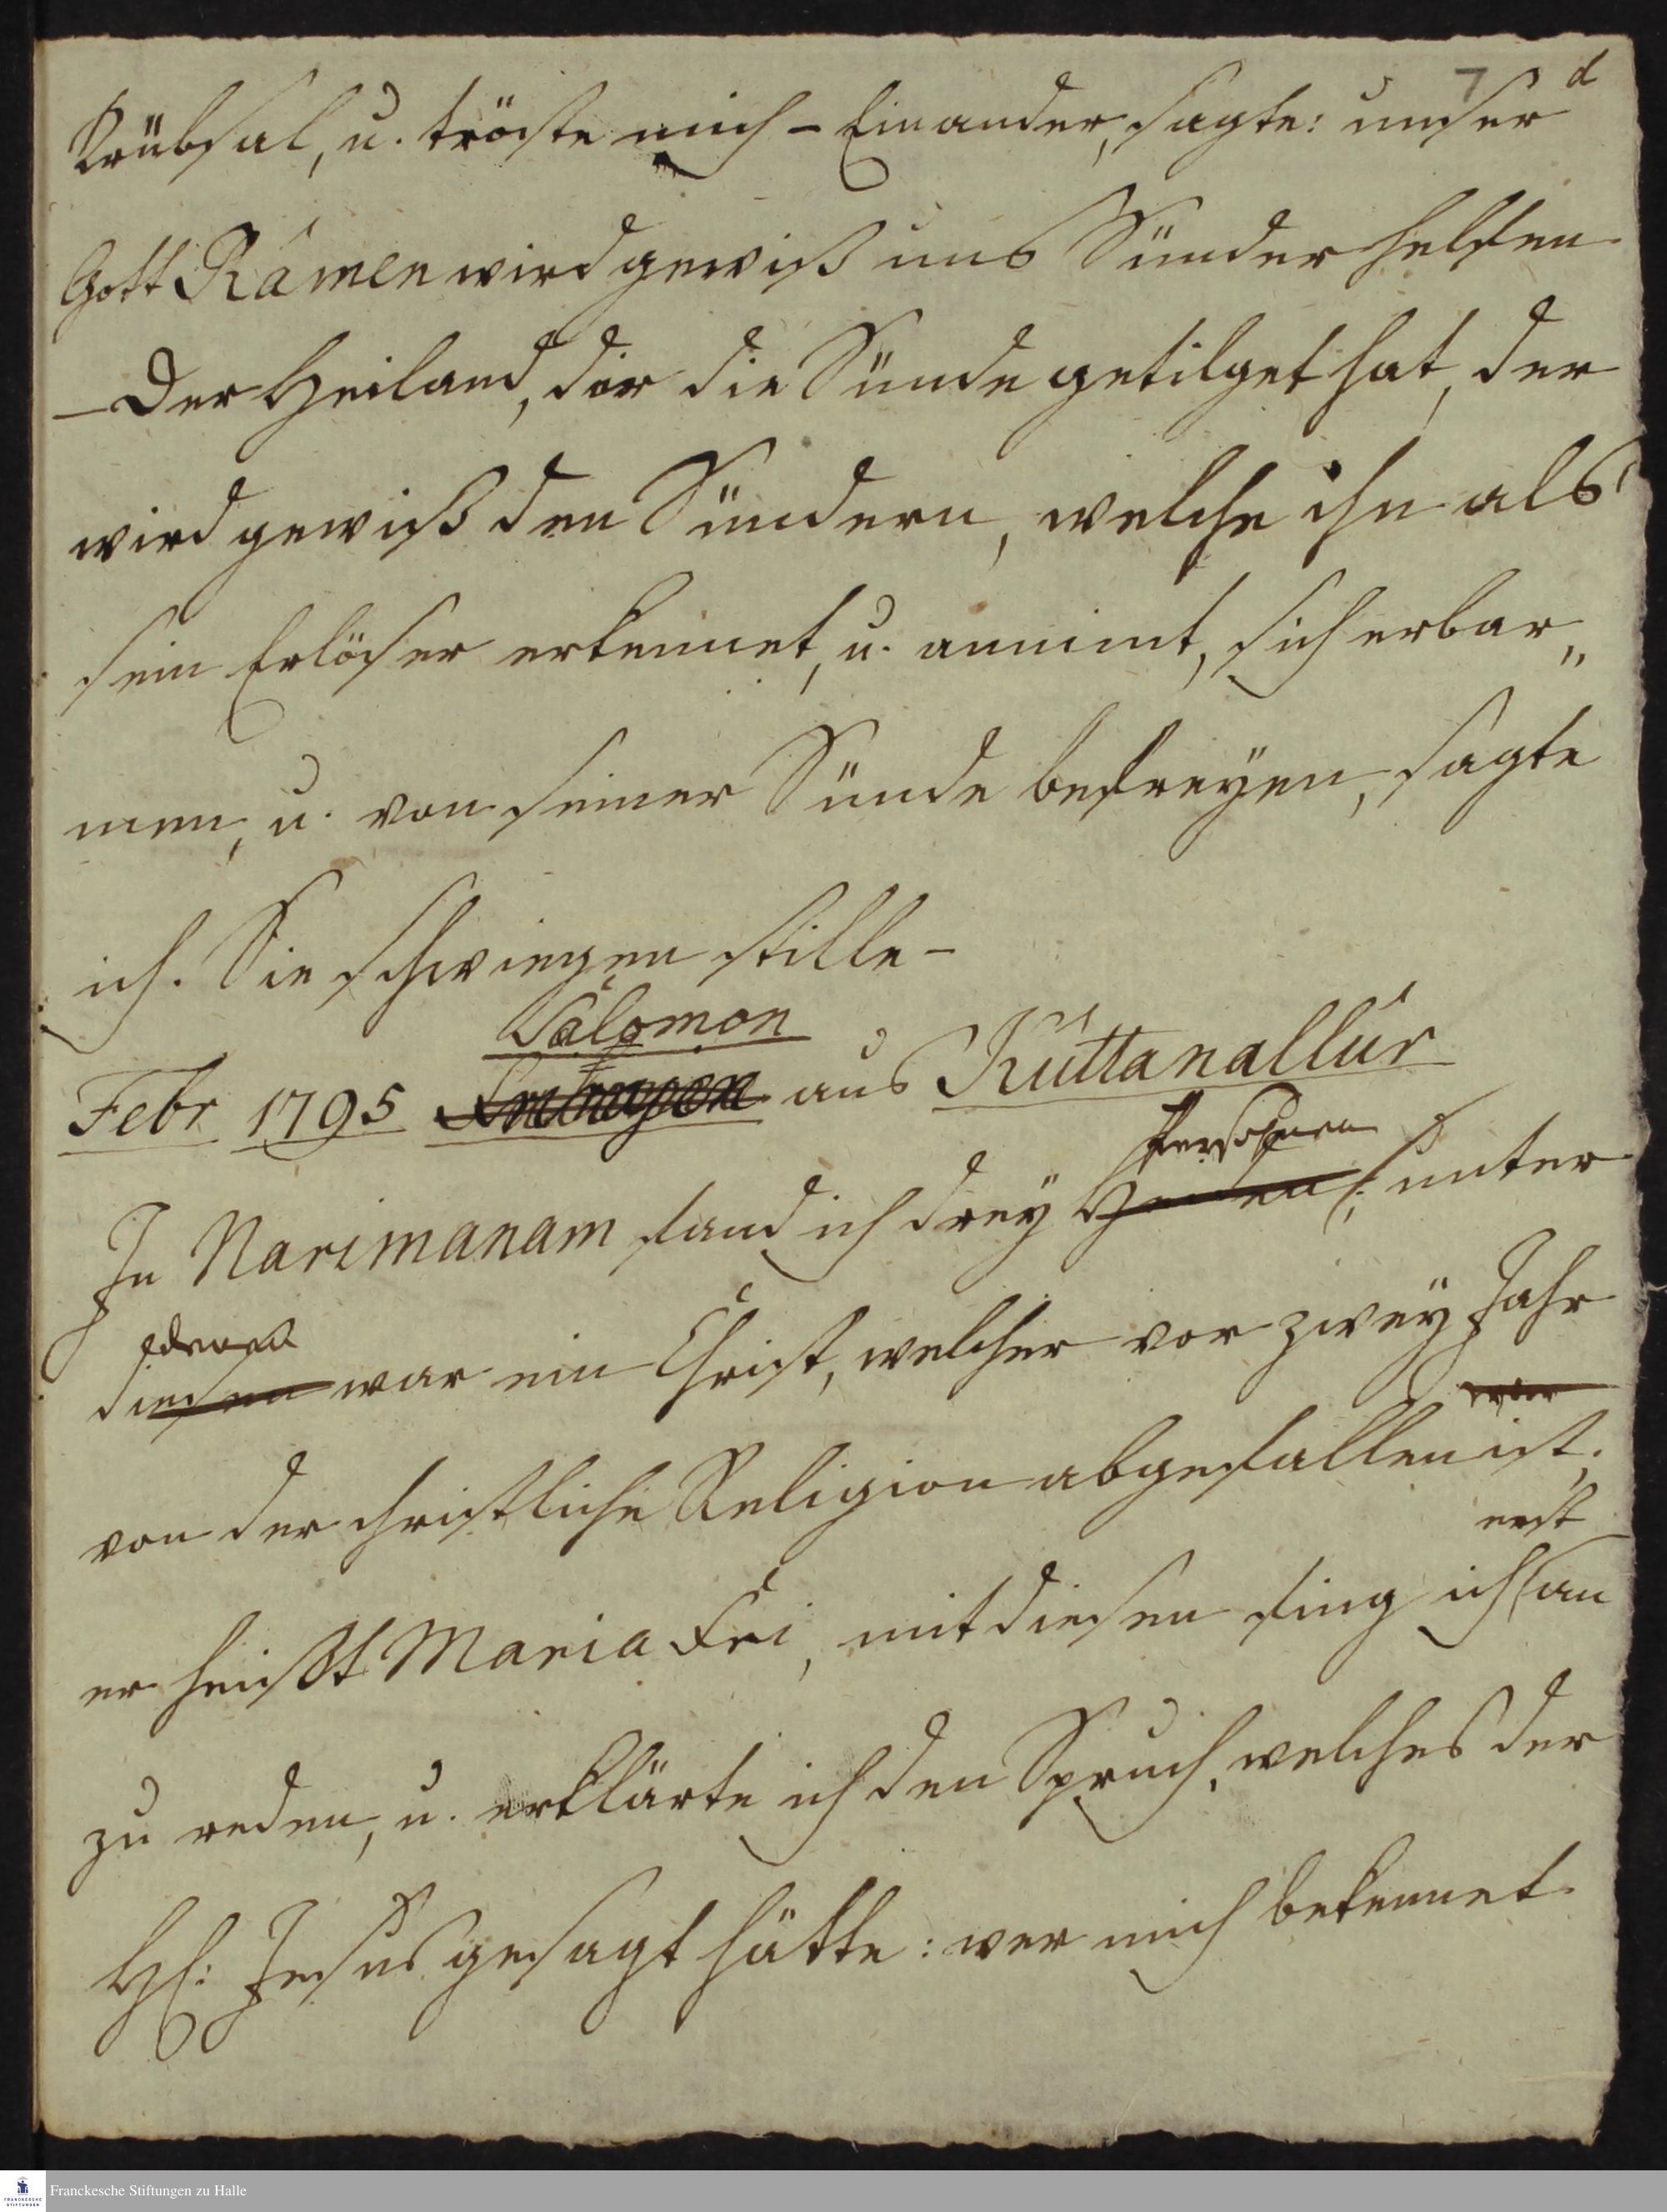 7 d
Trübsal, u. tröste mich – Ein ander, sagte: unser
Gott Râmen wird gewiß uns Sünder helfen
– Der Heiland, der die Sünde getilget hat, der
wird gewiß den Sündern, welche ihn als
sein Erlöser erkennet, u. annimt, sich erbar„
men, u. von seiner Sünde befreÿen, sagte
ich. Sie schwiegen stille –
Salomon
Febr 1795 aus Kúttanallúr
Persohnen
In Narimanam fand ich dreÿ Heiden unter
diesen war ein Christ, welcher vor zweÿ Jahr
war
von der christliche Religion abgefallen ist;
erst
er heißt Maria Fri, mit diesen fing ich an
zu reden, u. erklärte ich den Spruch, welches der
H: Jesus gesagt hätte: wer mich bekennet
FRANCKESCHE STIFTUNGEN
Franckesche Stiftungen zu Halle